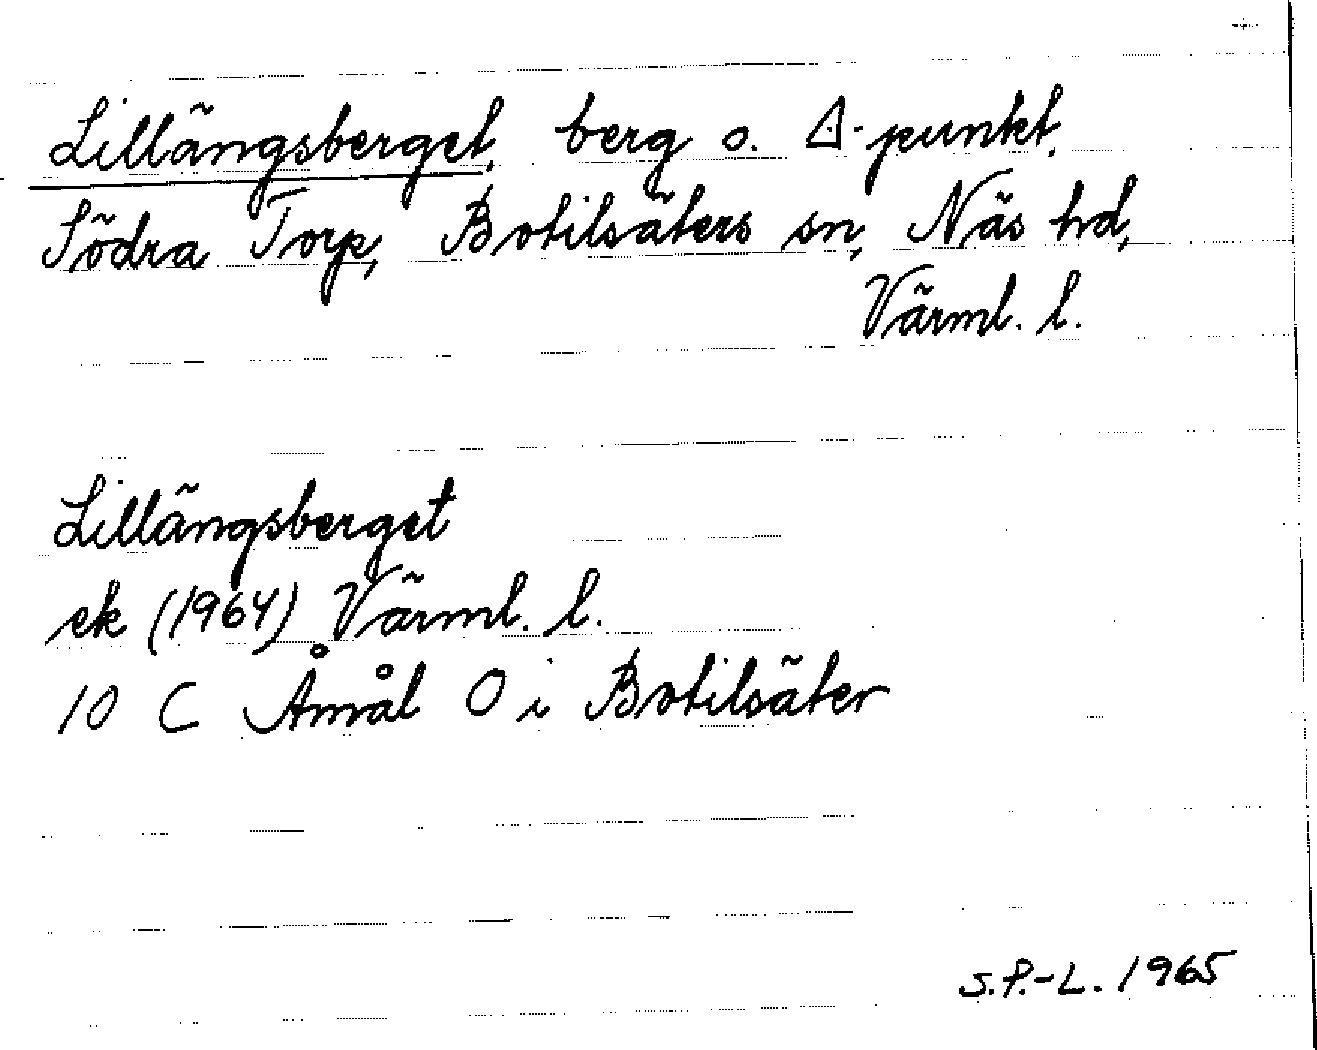 Lillängsberget, berg o. △-punkt.
Södra Torp, Botilsäters sn, Näs hd,
Värml. l.
Lillängsberget
ek (1964) Värml. l.
10 C Åmål O i Botilsäter
S.P.-L. 1965